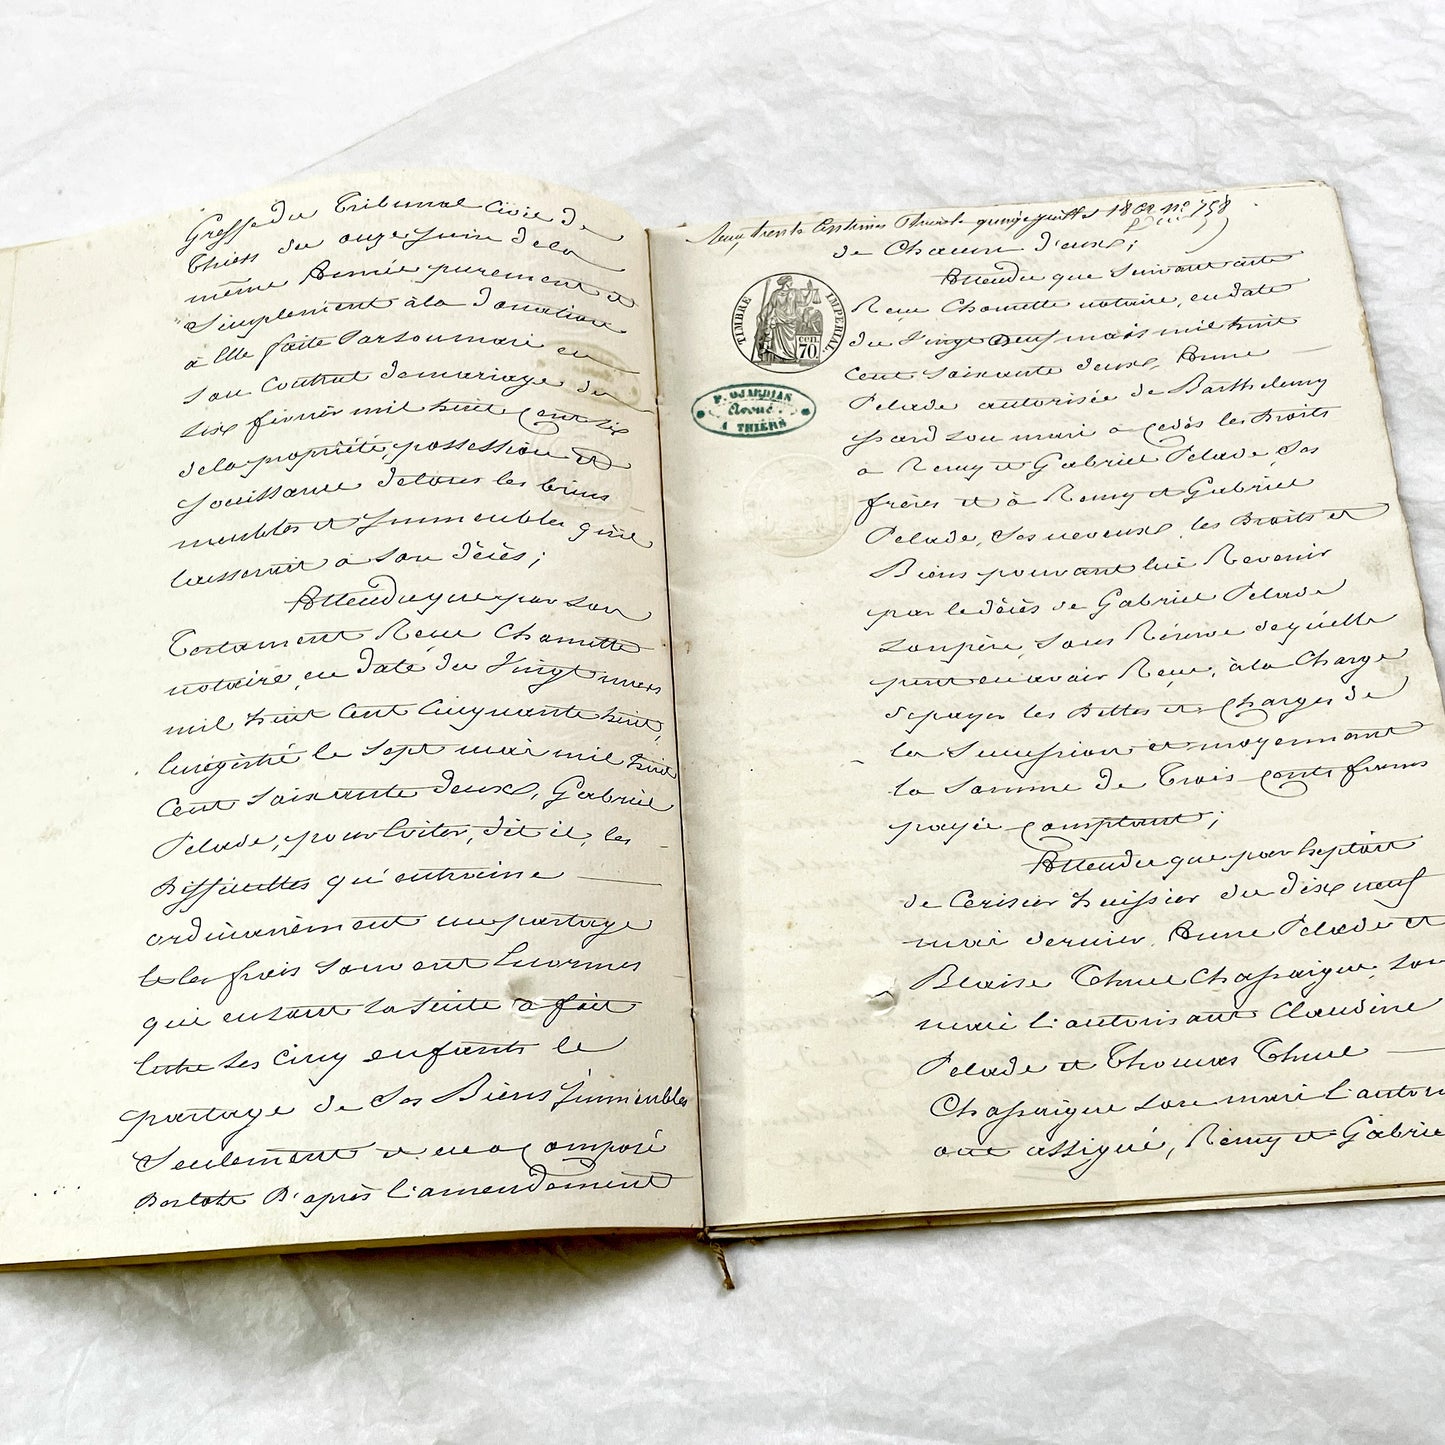 Greffe du Tribunal Civil de
Thiers du onze Juin de la
même Année purement et
Simplement à la donation
à Elle faite Par son mari en
son Contrat de mariage du
six février mil huit Cent six
de la propriété, possession et
Jouissance de tous les biens
meubles et Immeubles qu'il
laisserait à son décès;
Attendu que par son
Testament Reçu Chomette
notaire, en date du Vingt mars
mil huit Cent Cinquante huit,
Enrégistré le Sept mai mil huit
Cent Soixante deux, Gabriel
Pelade, pour Eviter, dit il, les
Difficultés qu'entraine
ordinairement un partage
et les frais souvent Enormes
qui en sont la Suite a fait
Entre ses Cinq enfants le
partage de Ses Biens Immeubles
Seulement et en a Composé
Des lots D'après L'amendement
trente Centimes Thiers le quinze juillet 1862 nº 758
de Chacun d'eux;
TIMBRE IMPERIAL
70 CEN.
F. OJARDIAS
Avoué
A THIERS
Attendu que Suivant acte
Reçu Chomette notaire, en date
du Vingt Neuf mars mil huit
cent soixante deux, Anne
Pelade autorisée de Barthelemy
son mari a Cédés les Droits
à Remy et Gabriel Pelade, Ses
frères et à Remy et Gabriel
Pelade, Ses neveux, les Droits et
Biens pouvant lui Revenir
par le décès de Gabriel Pelade
son père, Sans Réserve de qu'elle
peut en avoir Reçu, à la Charge
de payer les Dettes et Charges de
la Succession et moyennant
la Somme de Trois Cents francs
payée Comptant;
Attendu que par Exploit
de Cerisier huissier du dix neuf
mai dernier, Anne Pelade et
Blaise Thuel Chassaigne, son
mari L'autorisant Claudine
Pelade et Thomas Thuel
Chassaigne son mari L'autori
ont assigné, Rémy et Gabrie